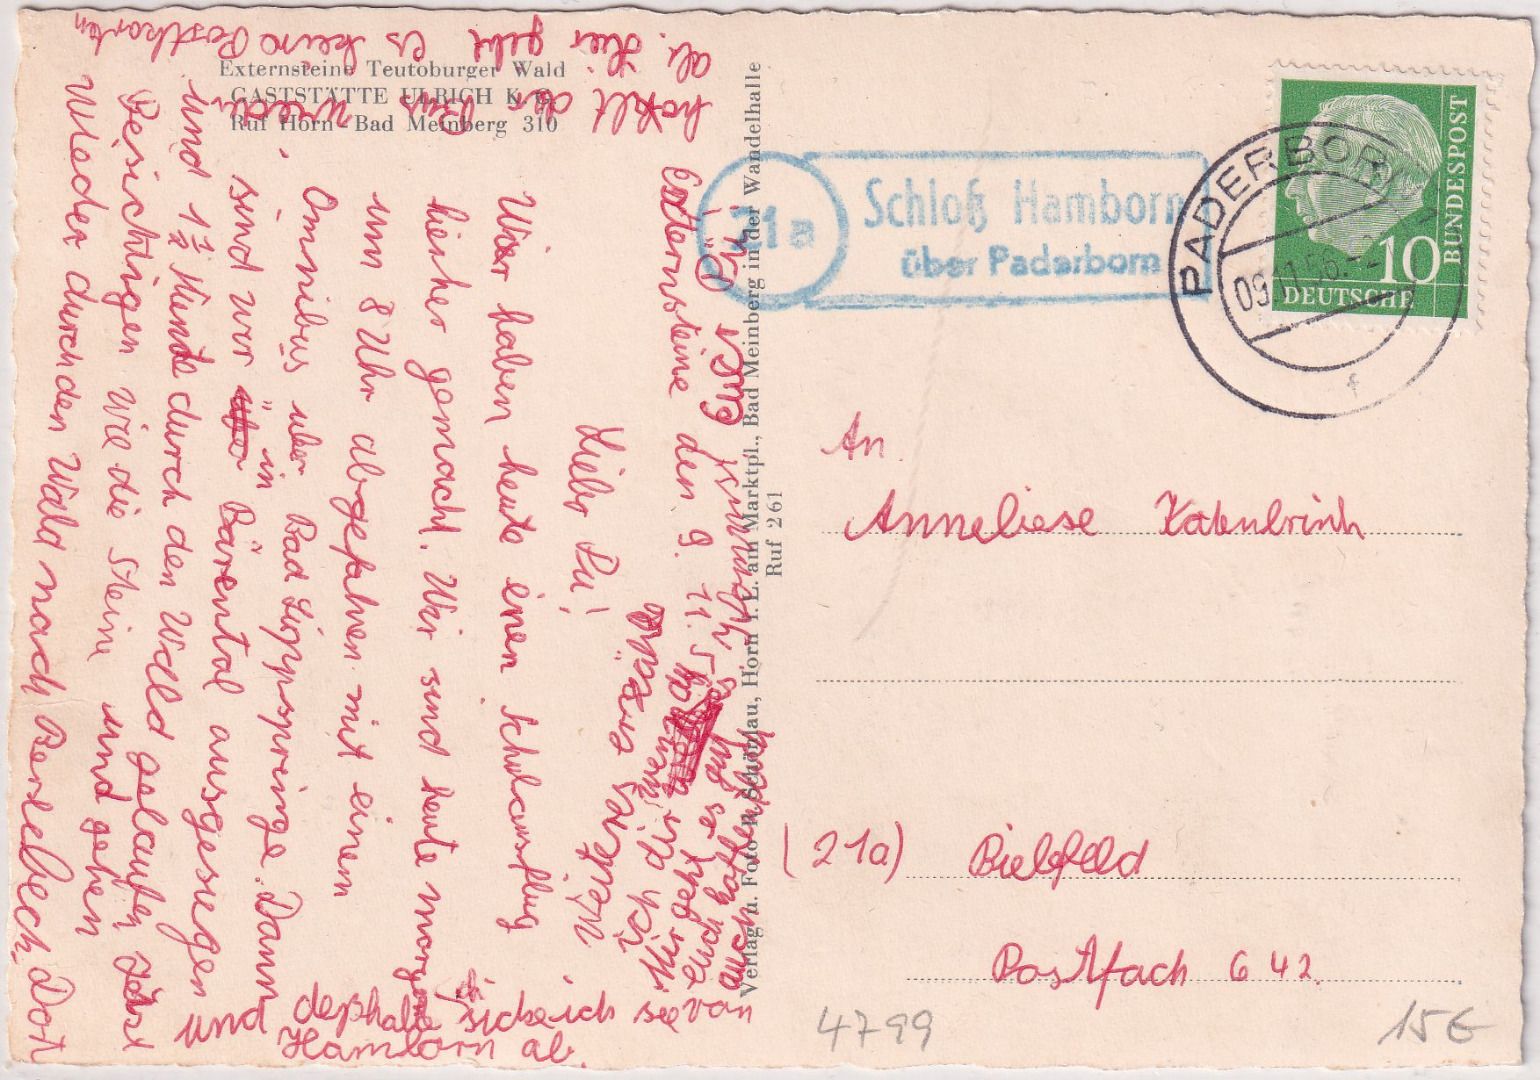 Externsteine Teutoburger Wald
GASTSTÄTTE ULRICH K. G.
Ruf Horn-Bad Meinberg 310
Externsteine den 9. 11. 5
Liebe Lu!
Wir haben heute einen Schulausflug
hierher gemacht. Wir sind heute morgen
um 8 Uhr abgefahren mit einem
Omnibus über Bad Lippspringe. Dann
sind wir in Bärental ausgesiegen
und 1 1/2 Stunde durch den Wald gelaufen. Jetzt
Besichtigen wir die Steine und gehen
Wieder durch den Wald nach Berlebeck. Dort
hohlt der Bus wieder
ab. Hier gebt es keine Postkarten
und deßhalb schicke ich sie von
Hamborn ab.
Weiteres erzäre
ich dir wen du
kommst.
Mir geht es gut
euch hoffendlich
auch
Verlag u. Foto R. Schönlau, Horn i. L. am Marktpl., Bad Meinberg in der Wandelhalle
Ruf 261
21a
Schloß Hamborn
über Paderborn
PADERBORN
09.11.56.
f
10
DEUTSCHE
BUNDESPOST
An
Anneliese Katenbrink
(21a) Bielefeld
Postfach 642.
4799
15€